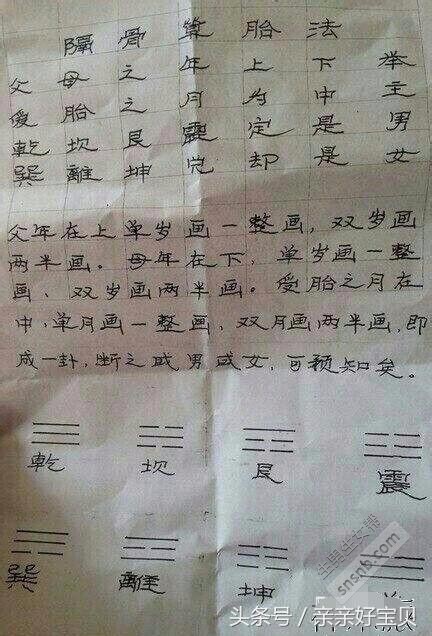 隔骨算胎法
父母之年上下举
爱胎之月为中主
乾坎艮震定是男
巽離坤兑却是女
父年在上单岁画一整画,双岁画
两半画。母年在下,单岁画一整
画、双岁画两半画。受胎之月在
中,单月画一整画,双月画两半画,即
成一卦,断之或男或女,可预知矣。
乾 坎 艮 震
巽 離 坤
生男生女帮
snsnb.com
头条号/亲亲好宝贝